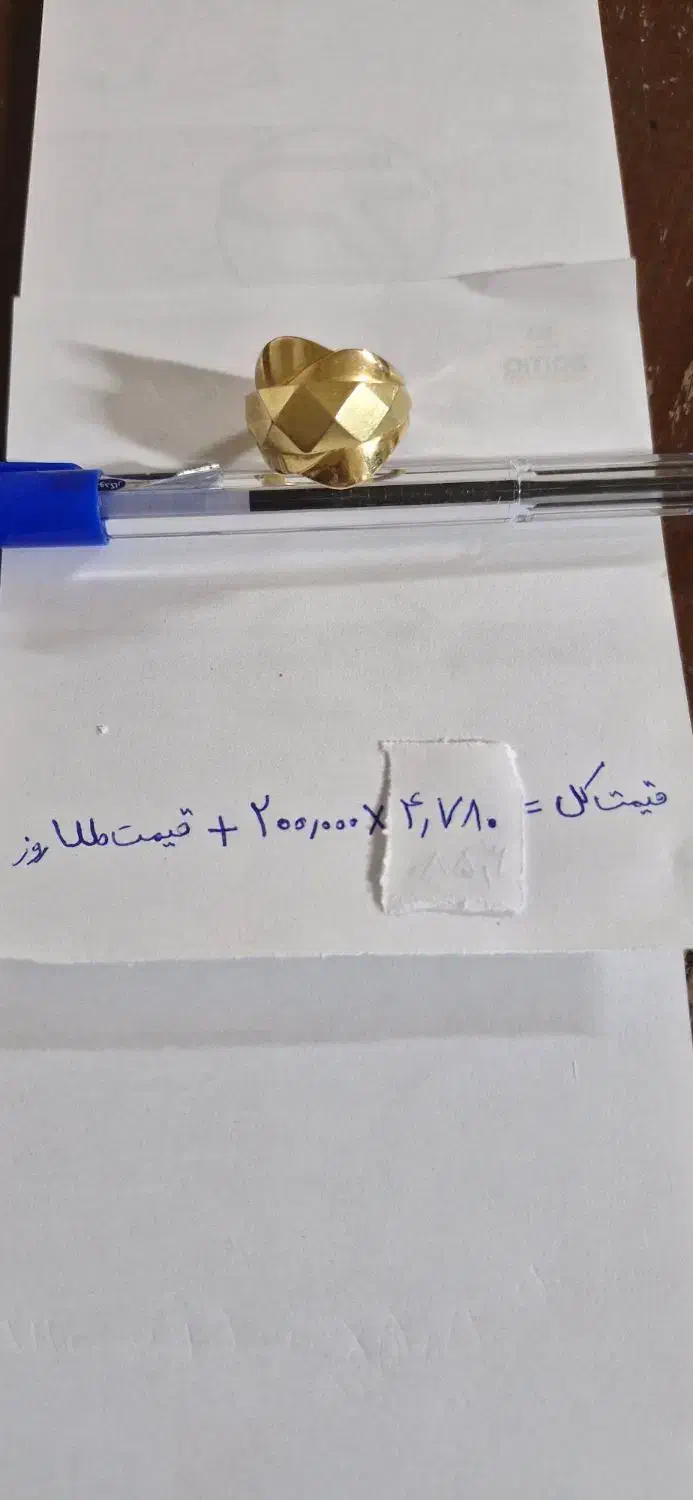 قیمت کل = ۴,۷۸۰ × ۲۰۰,۰۰۰ + قیمت طلا روز